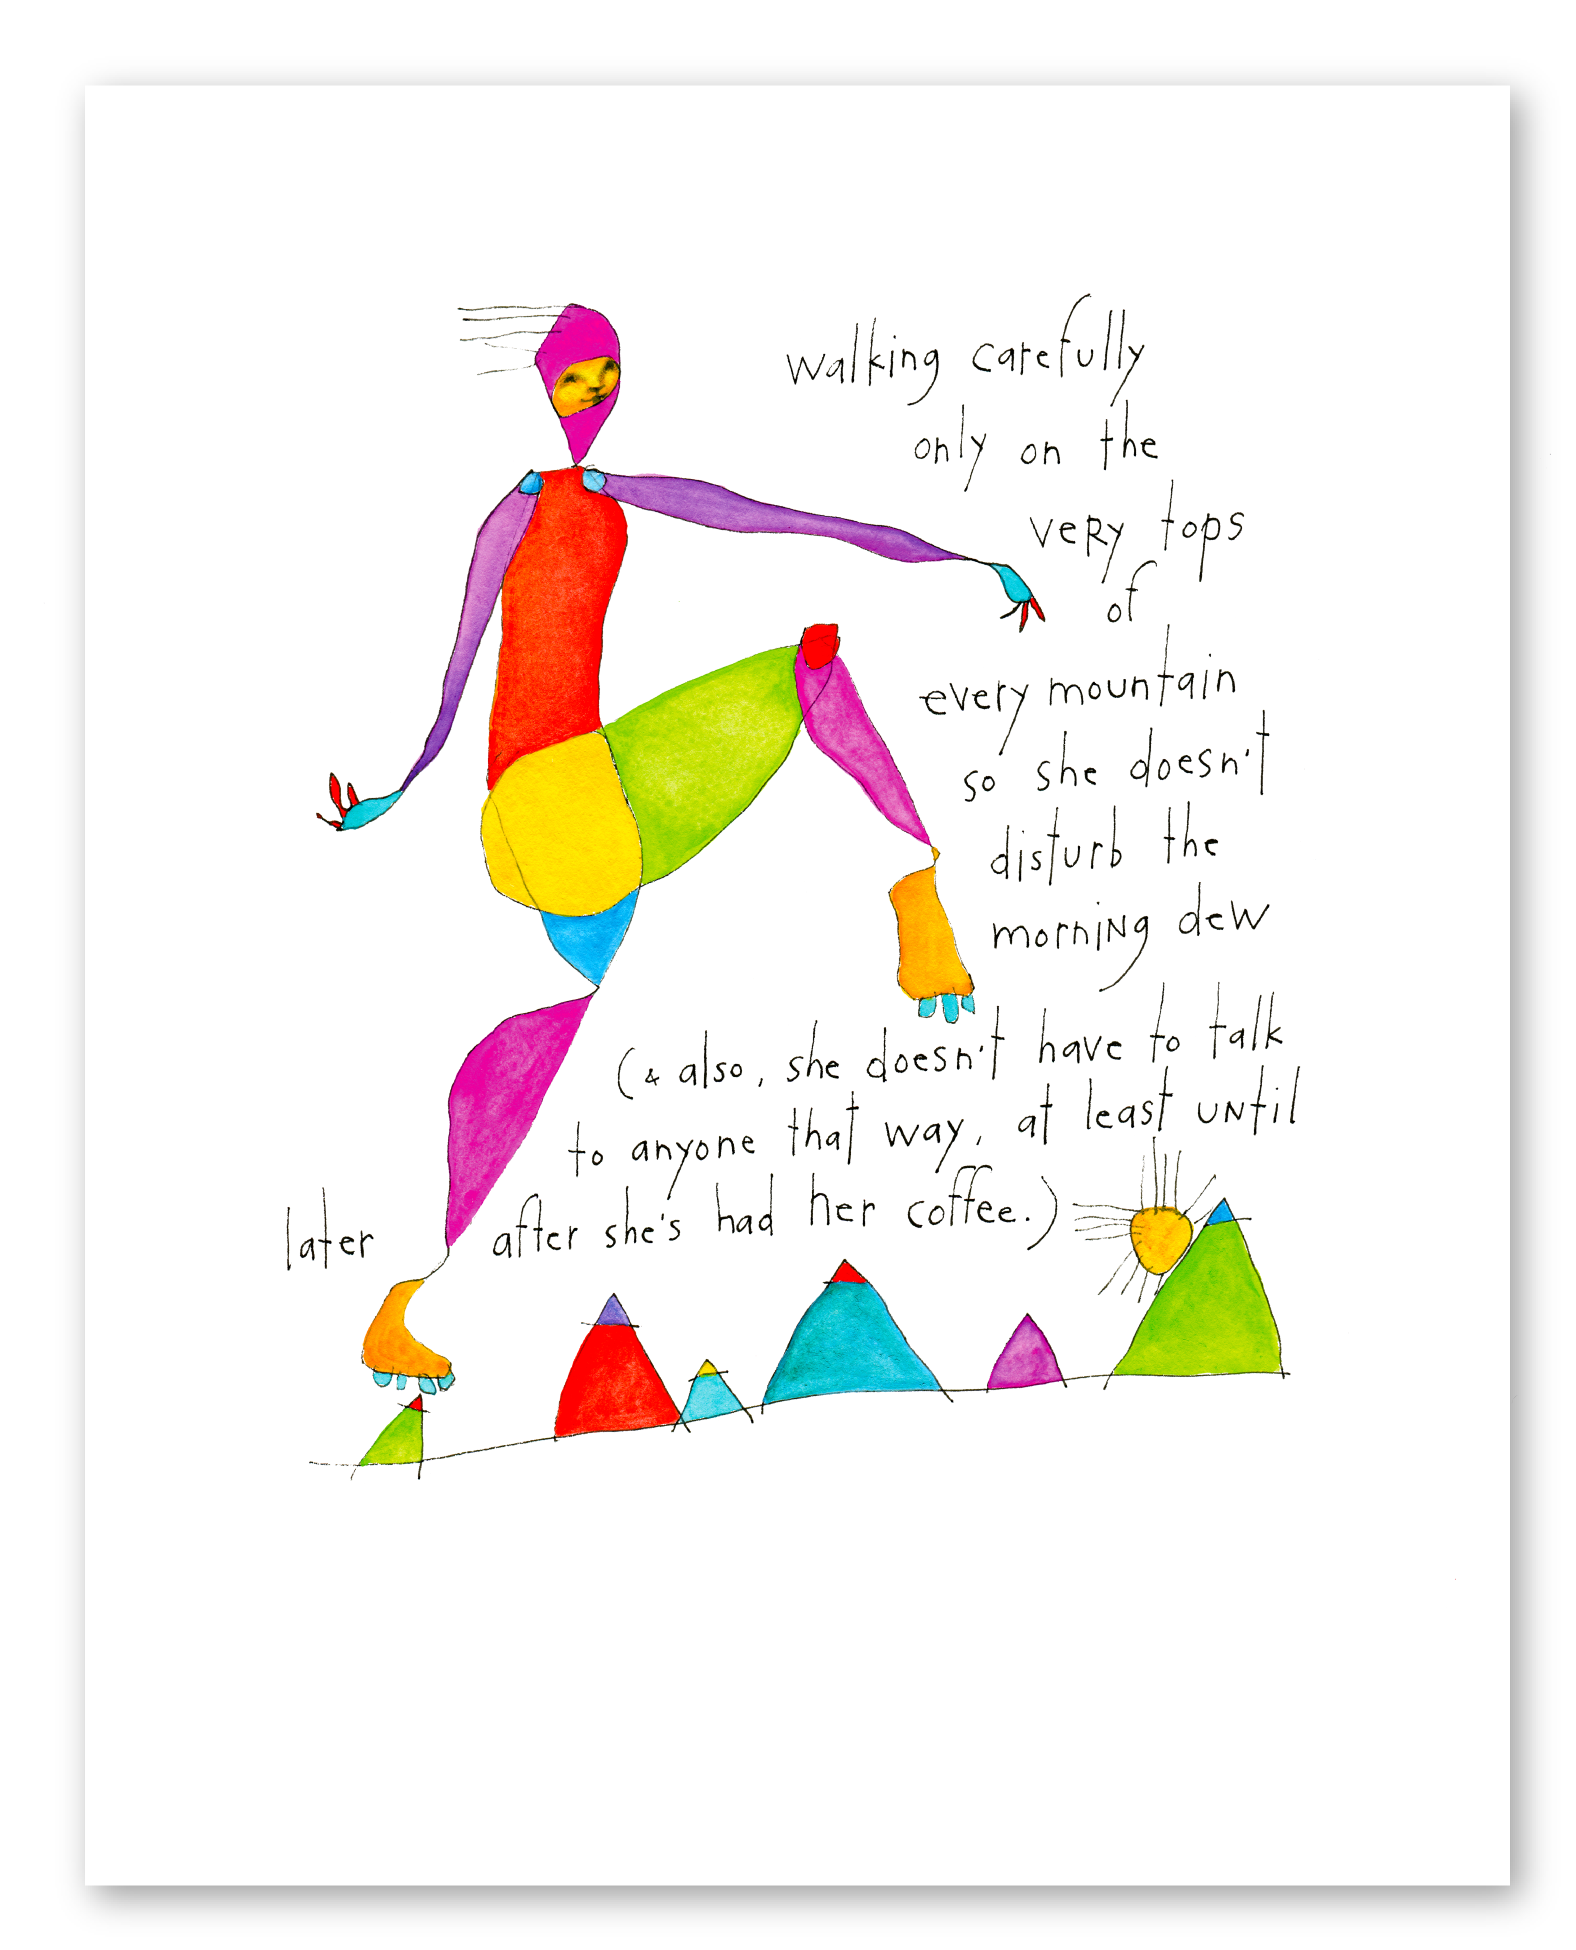 walking carefully
only on the
very tops
of
every mountain
so she doesn't
disturb the
morning dew
(& also, she doesn't have to talk
to anyone that way, at least until
later after she's had her coffee.)